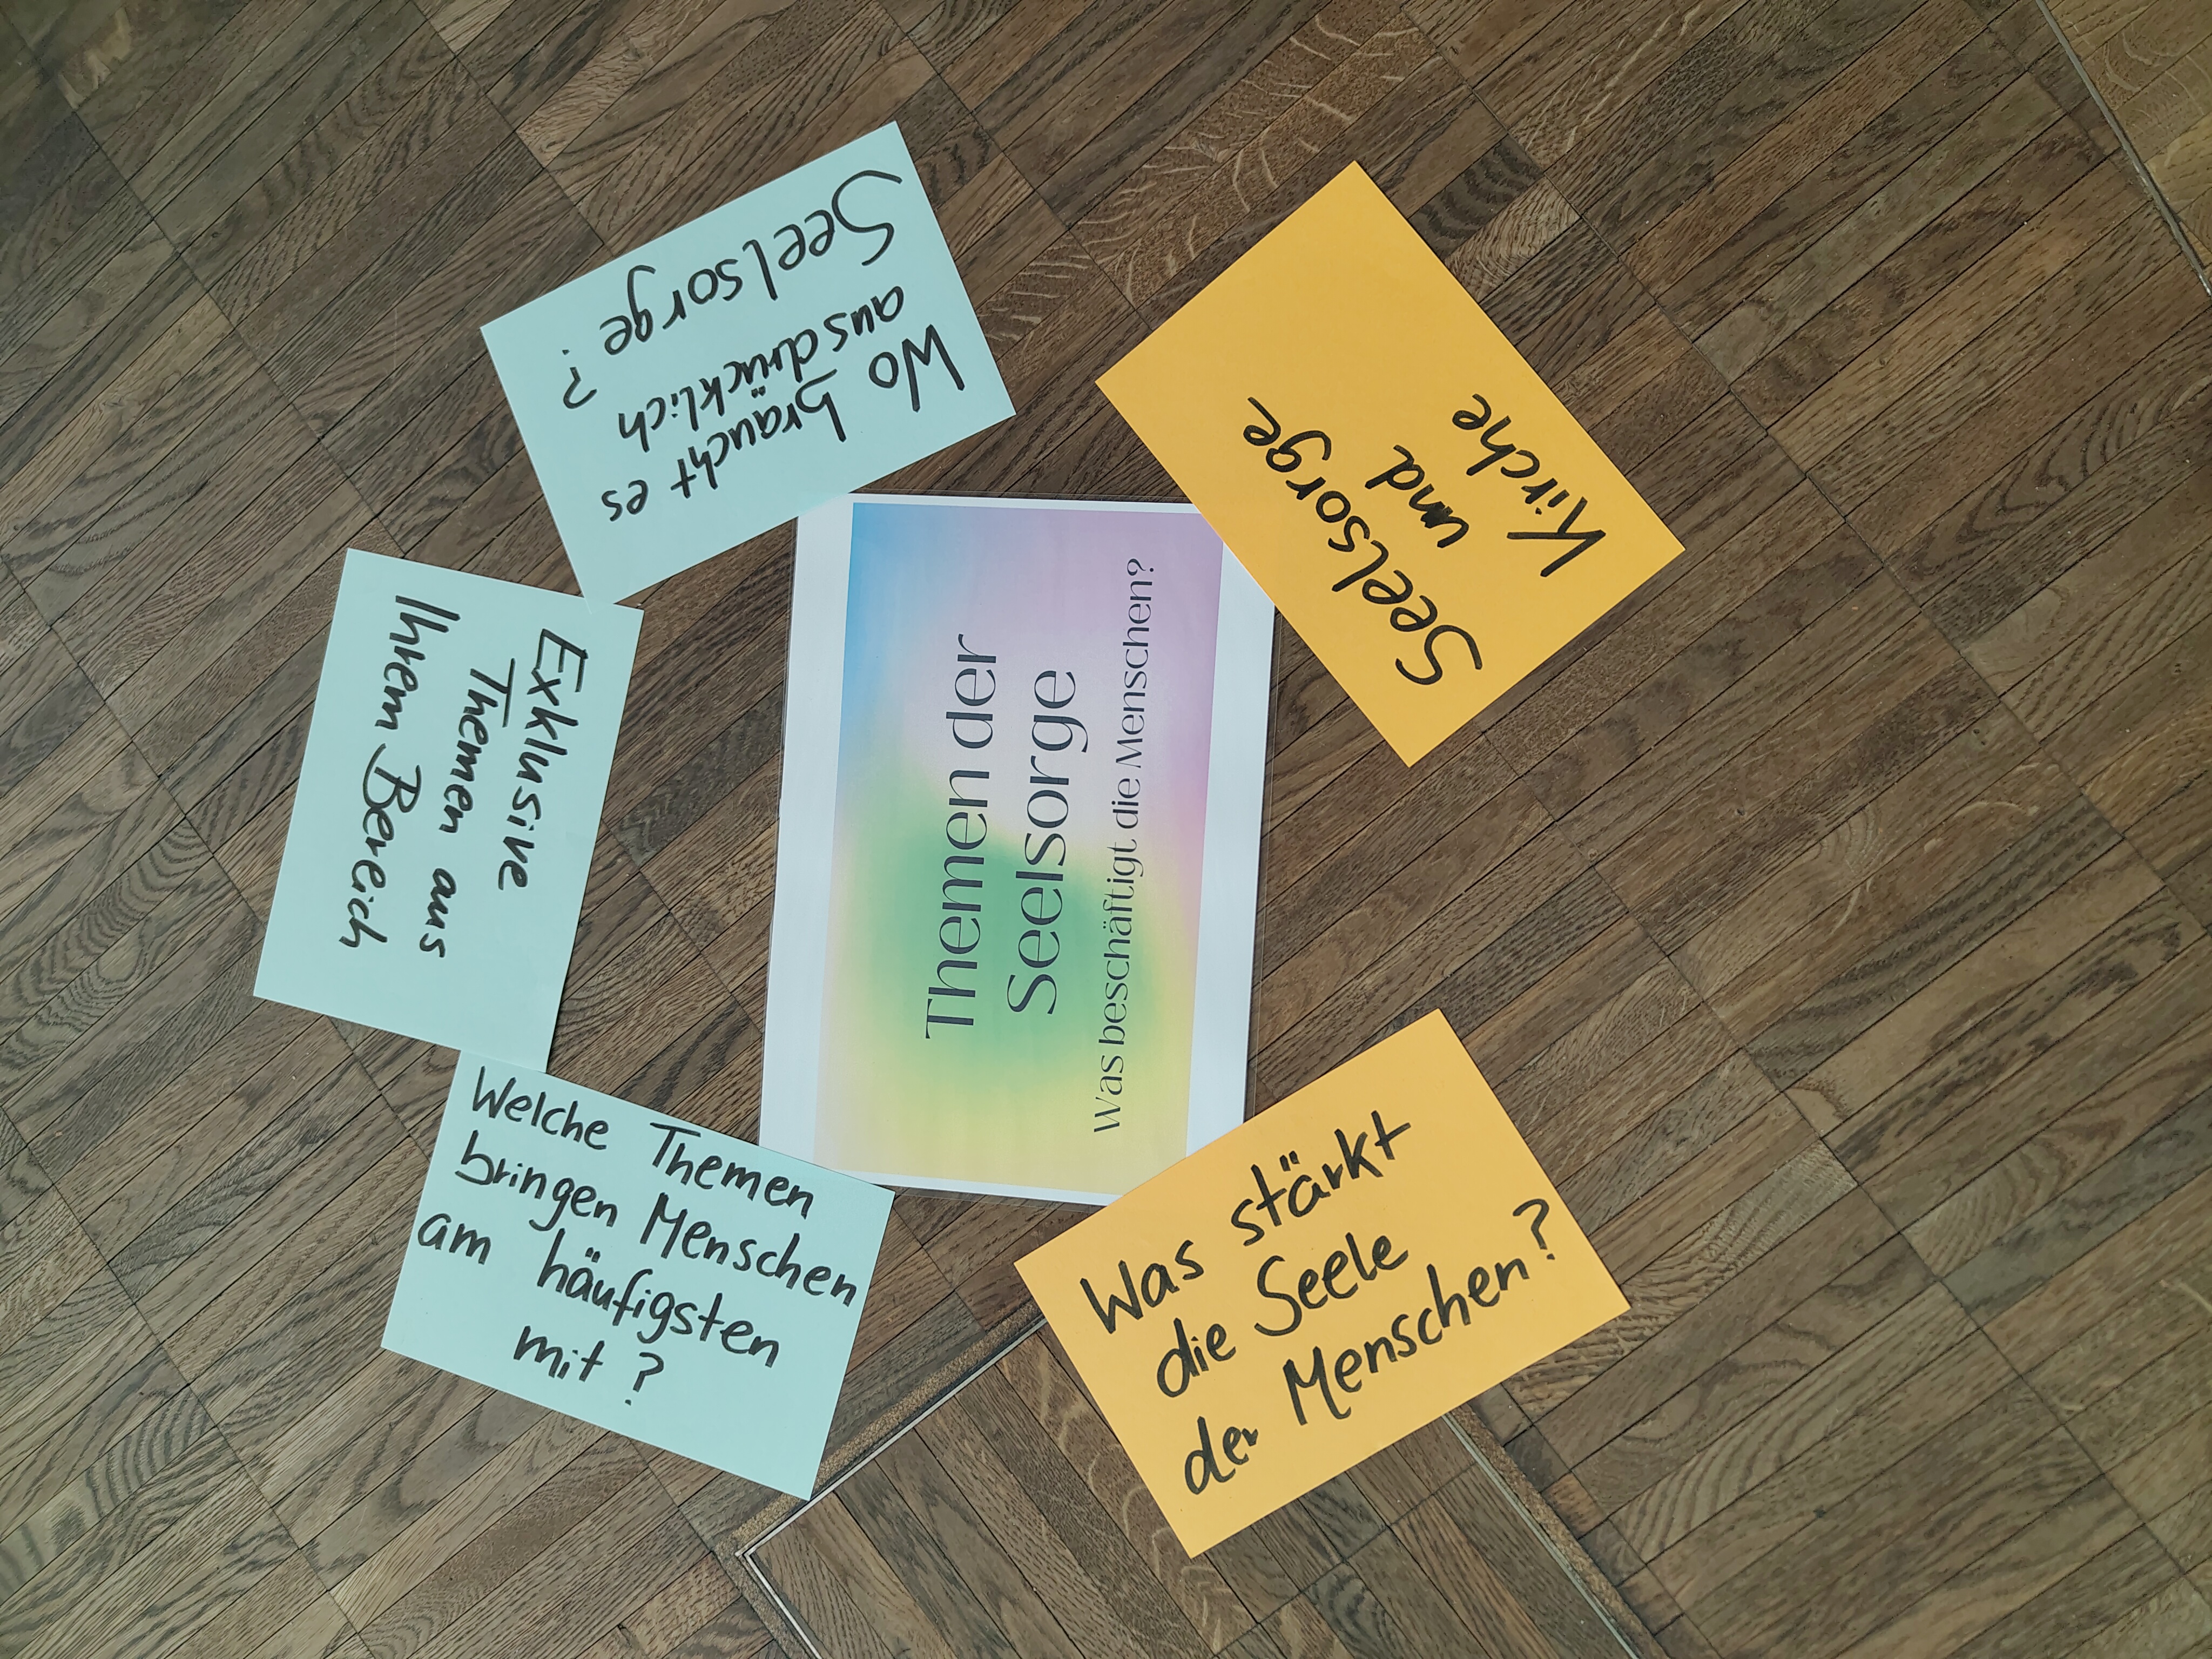 Themen der
Seelsorge
Was beschäftigt die Menschen?
Wo braucht es
ausdrücklich
Seelsorge?
Seelsorge
und
Kirche
Exklusive
Themen aus
Ihrem Bereich
Welche Themen
bringen Menschen
am häufigsten
mit?
Was stärkt
die Seele
der Menschen?